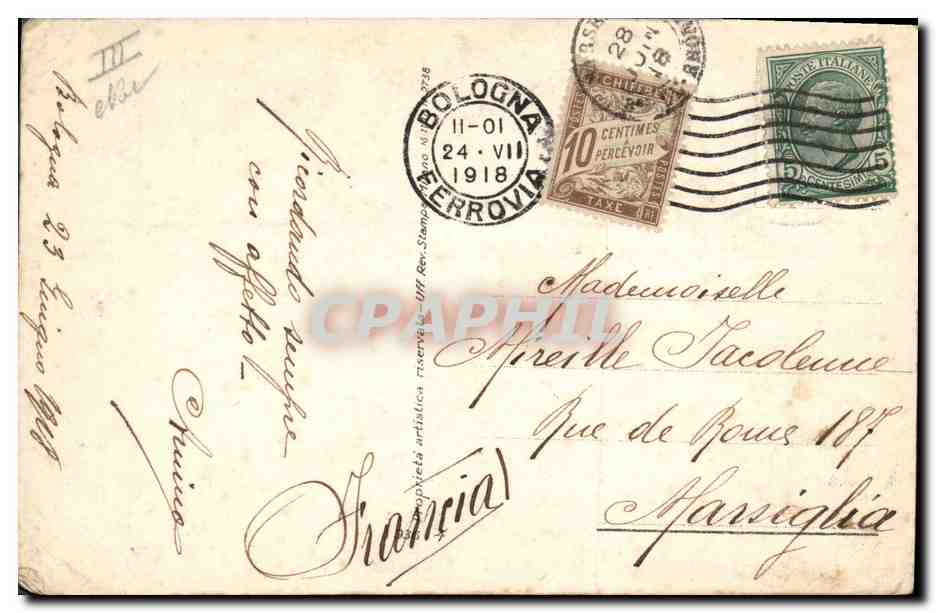 III
Bologna 23 Giugno 1918
Ricordando sempre
con affetto
Proprietà artistica riservata - Uff. Rev. Stampa
BOLOGNA
11-01
24 · VII
1918
FERROVIA
28
CHIFFRE
10 CENTIMES
A PERCEVOIR
POSTES
TAXE
POSTE ITALIANE
5 CENTESIMI 5
CPAPHIL
Mademoiselle
Mireille Jacolenne
Rue de Rome 187
Marsiglia
Francia